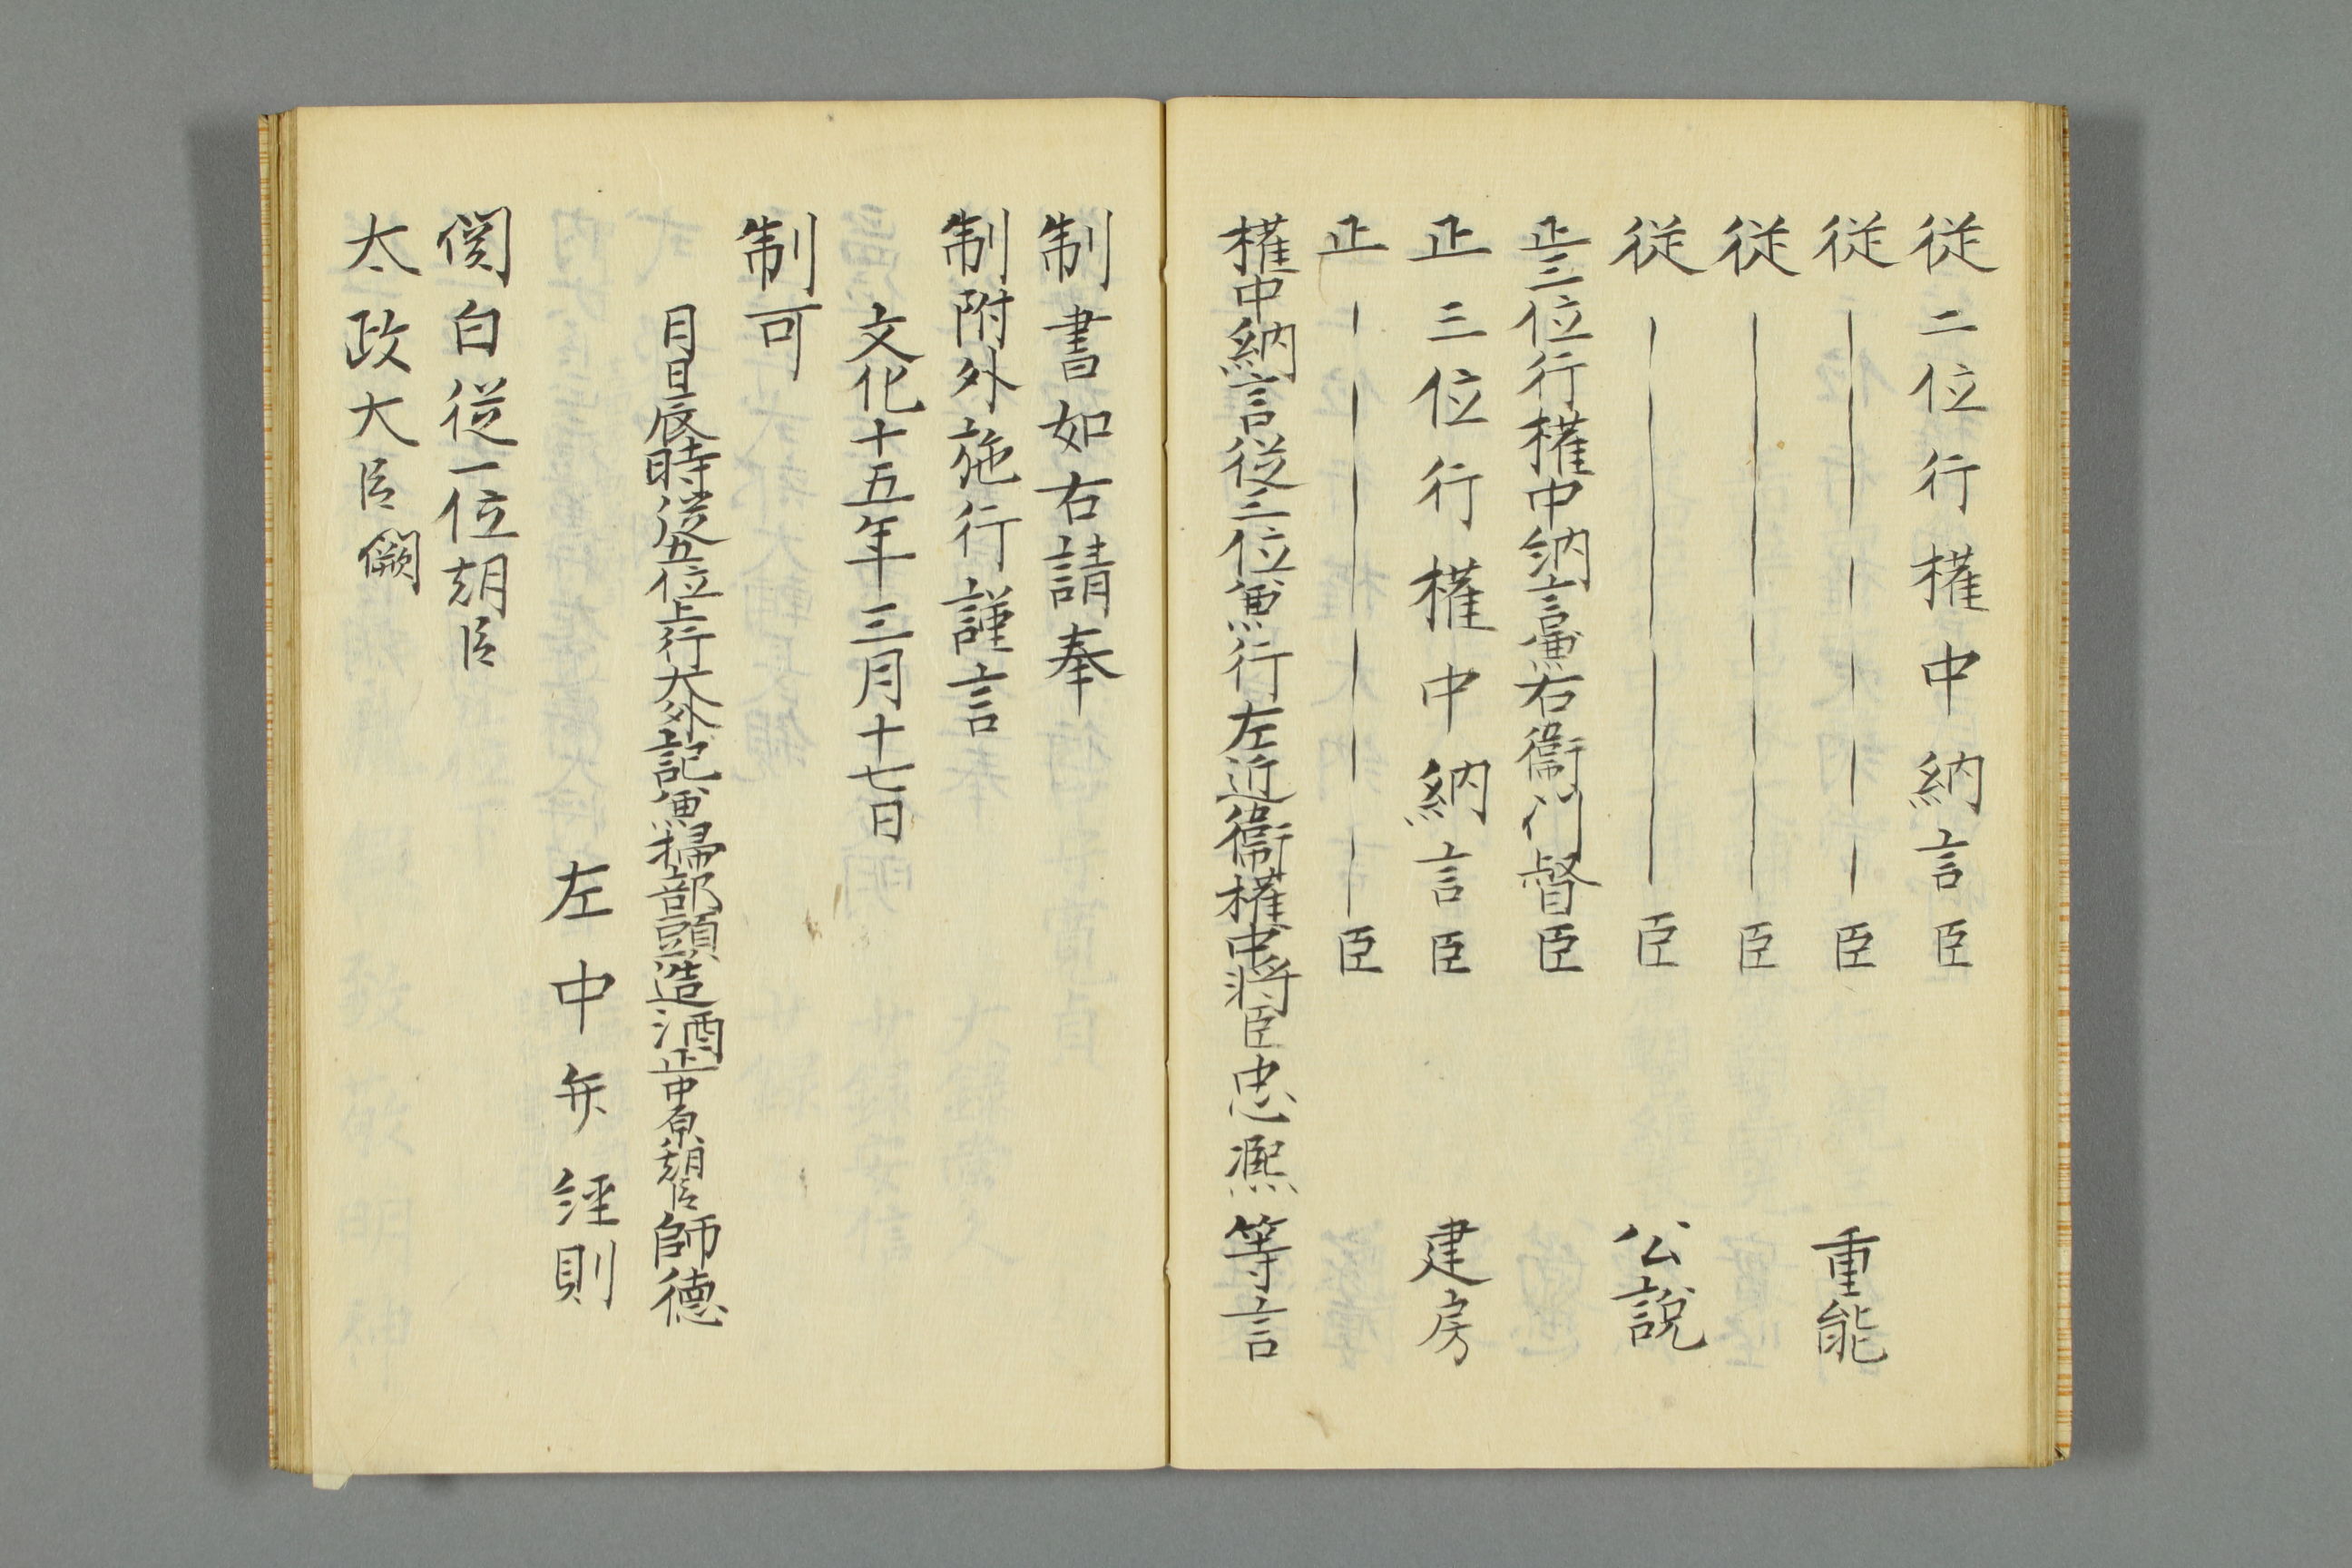 従二位行権中納言臣
従―――――臣 重能
従―――――臣
従―――――臣 公説
正三位行権中納言兼右衛門督臣
正三位行権中納言臣 建房
正―――――臣
権中納言従三位兼行左近衛権中将臣忠熈等言
制書如右請奉
制附外施行謹言
文化十五年三月十七日
制可
月日辰時従五位上行大外記兼掃部頭造酒正中原朝臣師徳
左中弁経則
関白従一位朝臣
太政大臣闕